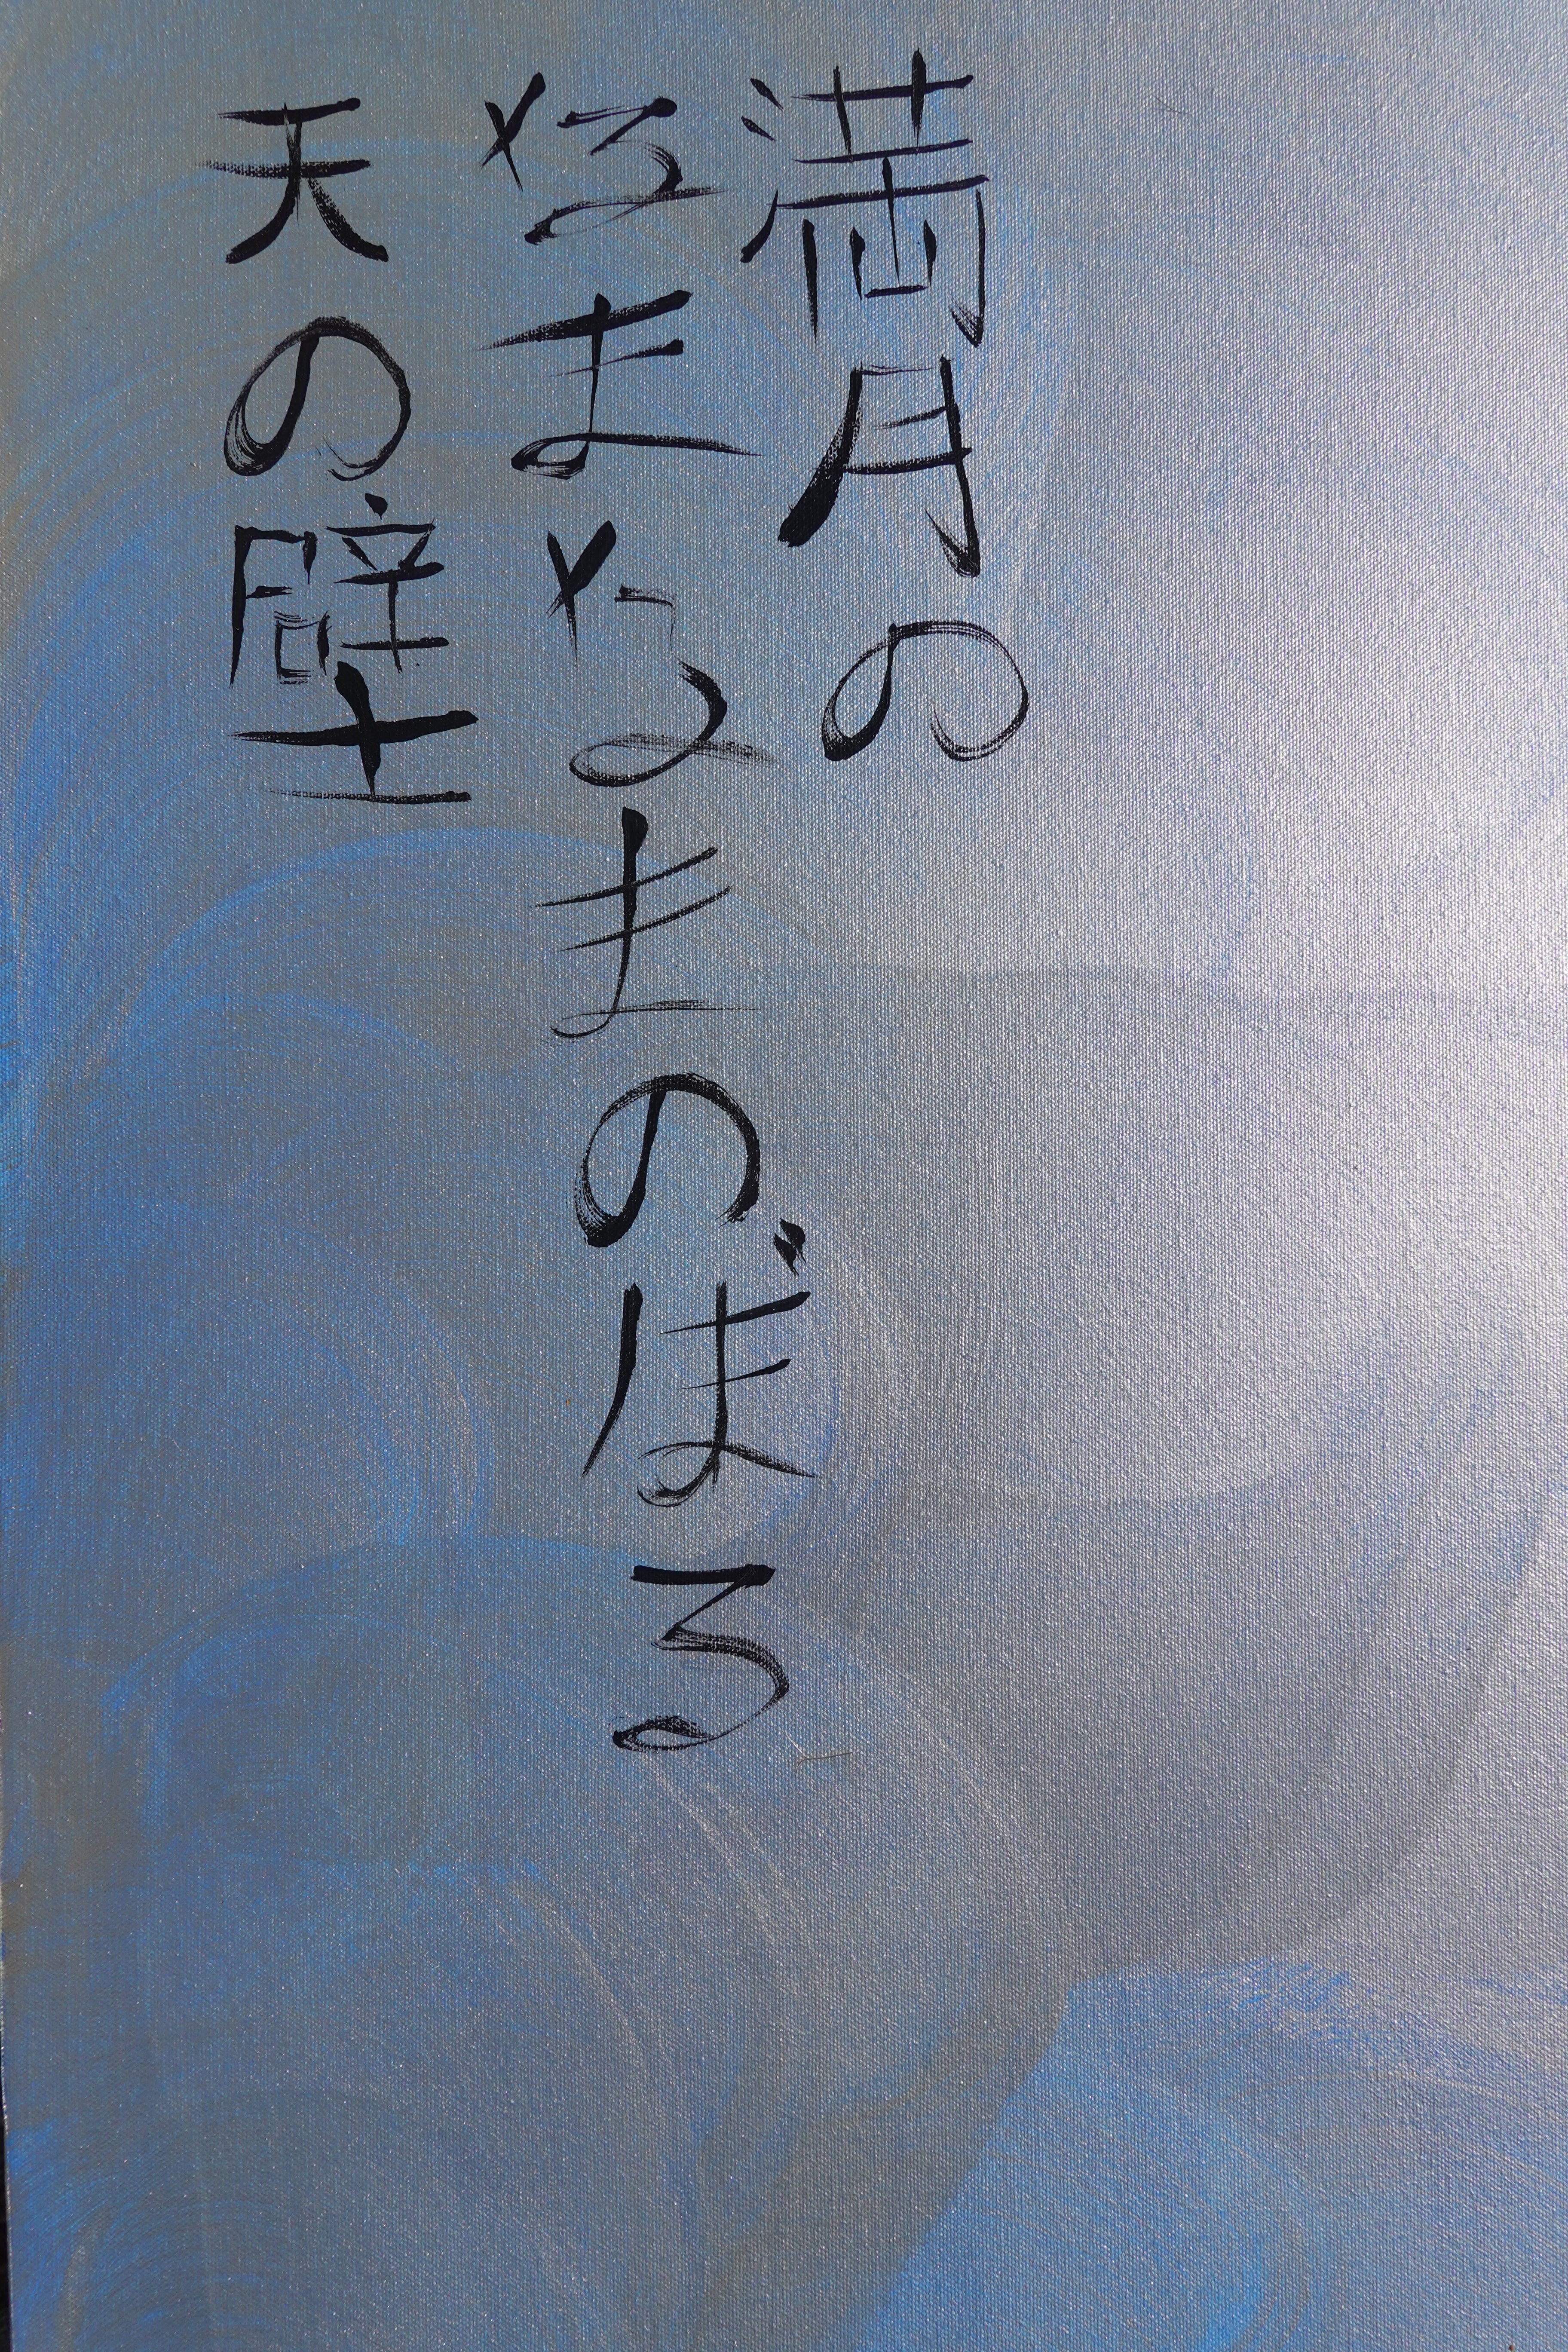 満月の
なまなまのぼる
天の壁